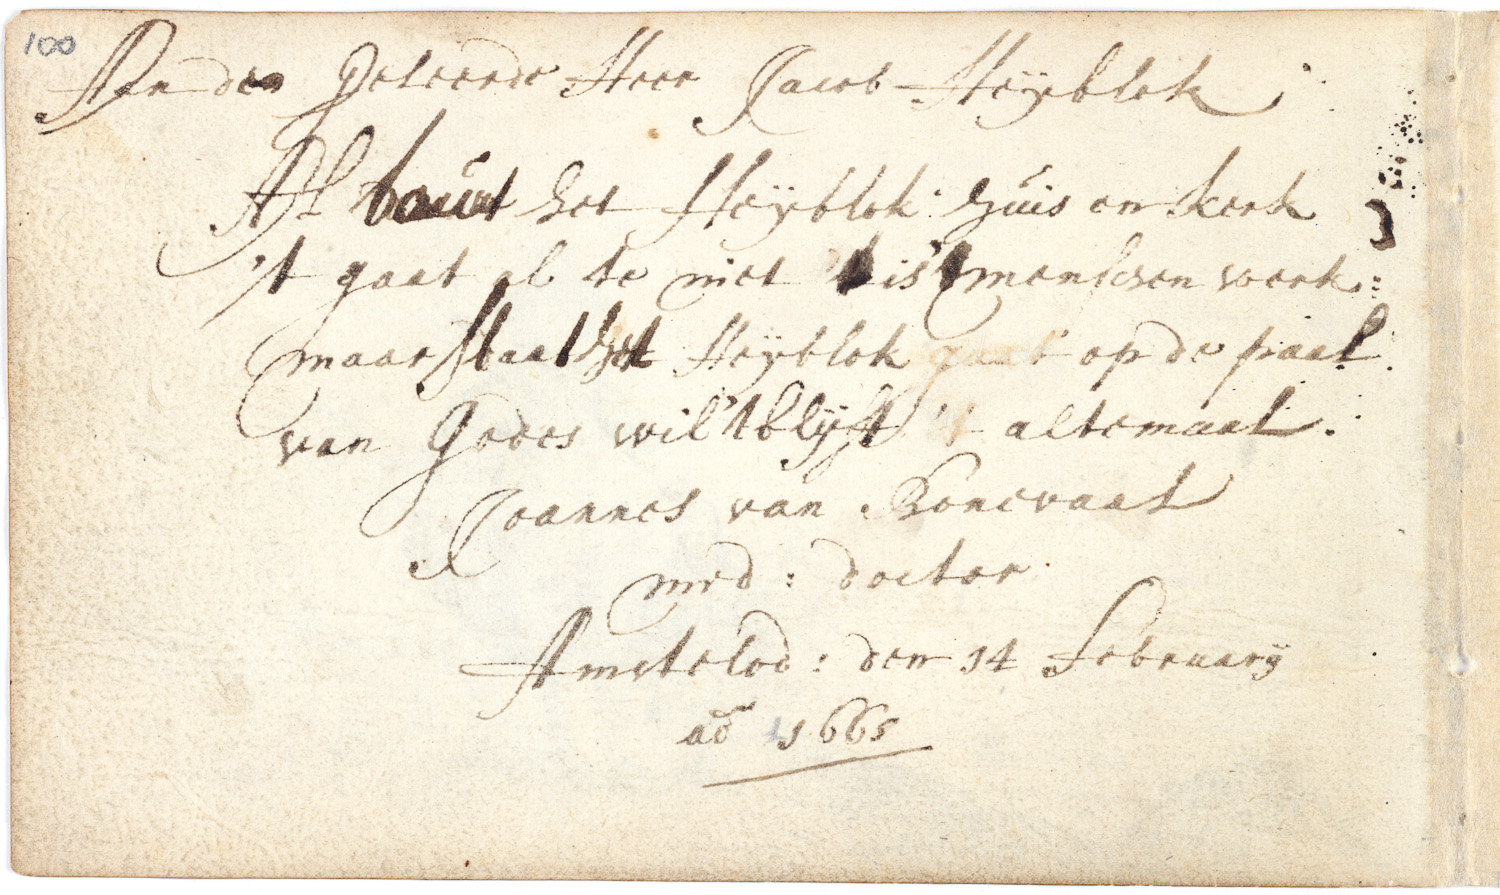 100
Aen den geleerde Heer Jacob Heÿblok
Al bouwt het Heÿblok huis en kerk
't gaat al te niet 't is menschen werk:
maar staat het Heÿblok op de paal
van Godes wil 't blÿft altemaal.
Joannes van
med: doctor
Amstelod: den 14 februarÿ
ao 1665